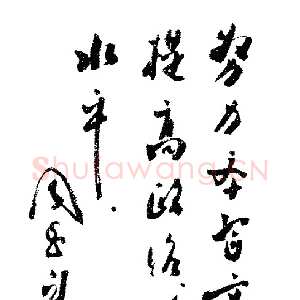 努力学習
提高政治
水平.
周
Shufawang.CN